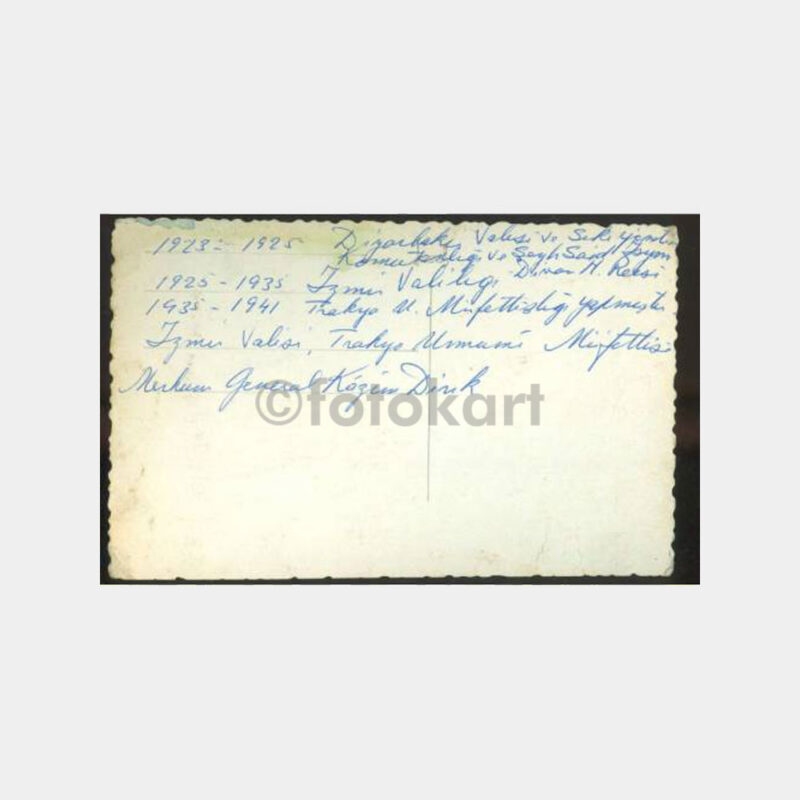 1923 - 1925 Diyarbakır Valisi ve
Komutanlığı ve Şeyh Said
1925 - 1935 İzmir Valiliği Divan H. Reisi
1935 - 1941 Trakya U. Müfettişliği yapmıştı
İzmir Valisi, Trakya Umumî Müfettişi
Merhum General Kâzım Dirik
©fotokart